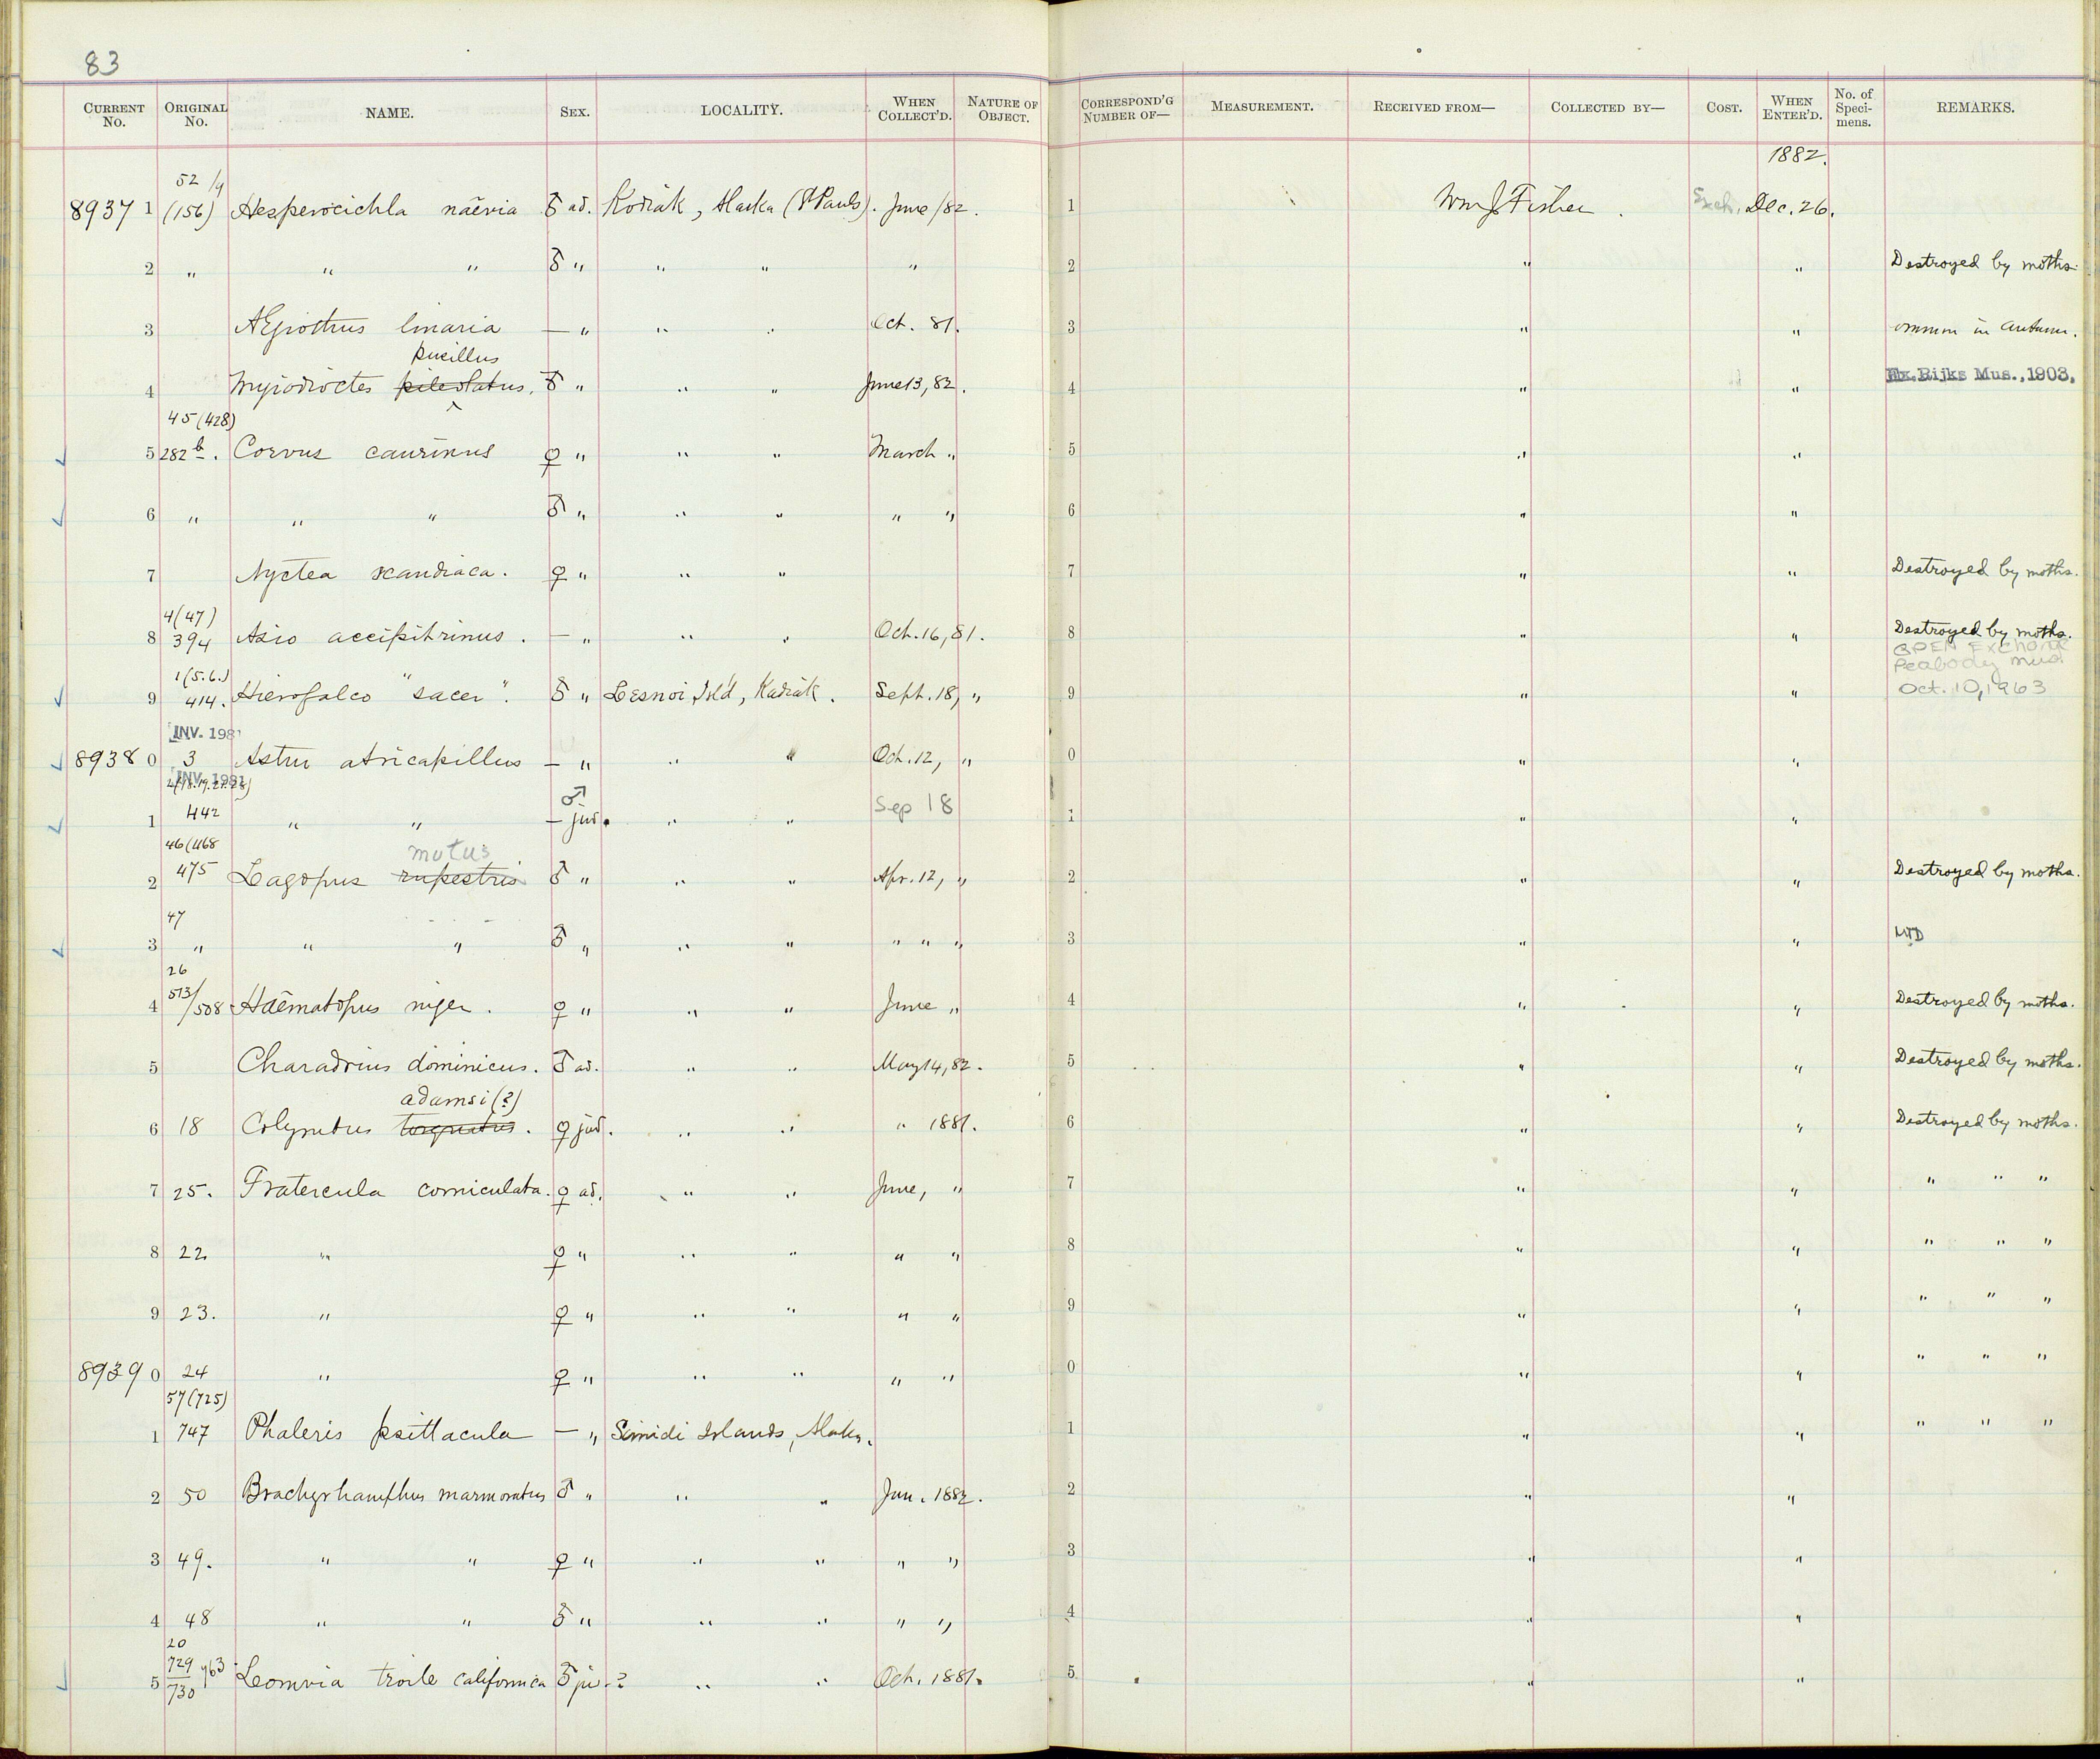 83
CURRENT No. ORIGINAL No. NAME. SEX. LOCALITY. WHEN COLLECT'D. NATURE OF OBJECT. CORRESPOND'G NUMBER OF— MEASUREMENT. RECEIVED FROM— COLLECTED BY— COST. WHEN ENTER'D. No. of Specimens. REMARKS.
1882.
52/4
8937 1 (156) Hesperocichla naevia ♂ ad. Kodiak, Alaska (St Pauls). June /82. 1 Wm J Fisher. Exch. Dec. 26.
2 " " " ♂ " " " " 2 " " Destroyed by moths.
3 Ægiothus linaria — " " " Oct. 81. 3 " " ommon in Autumn.
pusillus
4 Myiodioctes pileolatus. ♂ " " " June 13, 82. 4 " " Ex. Rijks Mus., 1903.
45 (428)
5 282 b. Corvus caurinus ♀ " " " March " 5 " "
6 " " " ♂ " " " " " 6 " "
7 Nyctea scandiaca. ♀ " " " 7 " " Destroyed by moths.
4(47)
8 394 Asio accipitrinus. — " " " Oct. 16, 81. 8 " " Destroyed by moths.
OPEN Exchange
Peabody Mus
1(5.6.)
9 414. Hierofalco "sacer". ♂ " Lesnoi Isl'd, Kadiak. Sept. 18, " 9 " " Oct. 10, 1963
INV. 1981
8938 0 3 Astur atricapillus — " " " Oct. 12, " 0 " "
INV. 1981
♂
1 442 " " — juv. " " Sep 18 1 " "
46(468
mutus
2 475 Lagopus rupestris ♂ " " " Apr. 12, " 2 " " Destroyed by moths.
47
3 " " " ♂ " " " " " " 3 " "
26
4 513/508 Haematopus niger. ♀ " " " June " 4 " " Destroyed by moths.
5 Charadrius dominicus. ♂ ad. " " May 14, 82. 5 " " Destroyed by moths.
adamsi (?)
6 18 Colymbus torquatus. ♀ juv. " " " 1881. 6 " " Destroyed by moths.
7 25. Fratercula corniculata. ♀ ad. " " June, " 7 " " " " "
8 22 " ♀ " " " " " 8 " " " " "
9 23. " ♀ " " " " " 9 " " " " "
8939 0 24 " ♀ " " " " " 0 " " " " "
57(725)
1 747 Phaleris psittacula — " Simidi Islands, Alaka. 1 " " " " "
2 50 Brachyrhamphus marmoratus ♂ " " " Jan. 1882. 2 " "
3 49. " " ♀ " " " " " 3 " "
4 48 " " ♂ " " " " " 4 " "
20
5 729/730 763 Lomvia troile californica ♂ juv.? " " Oct. 1881. 5 " "